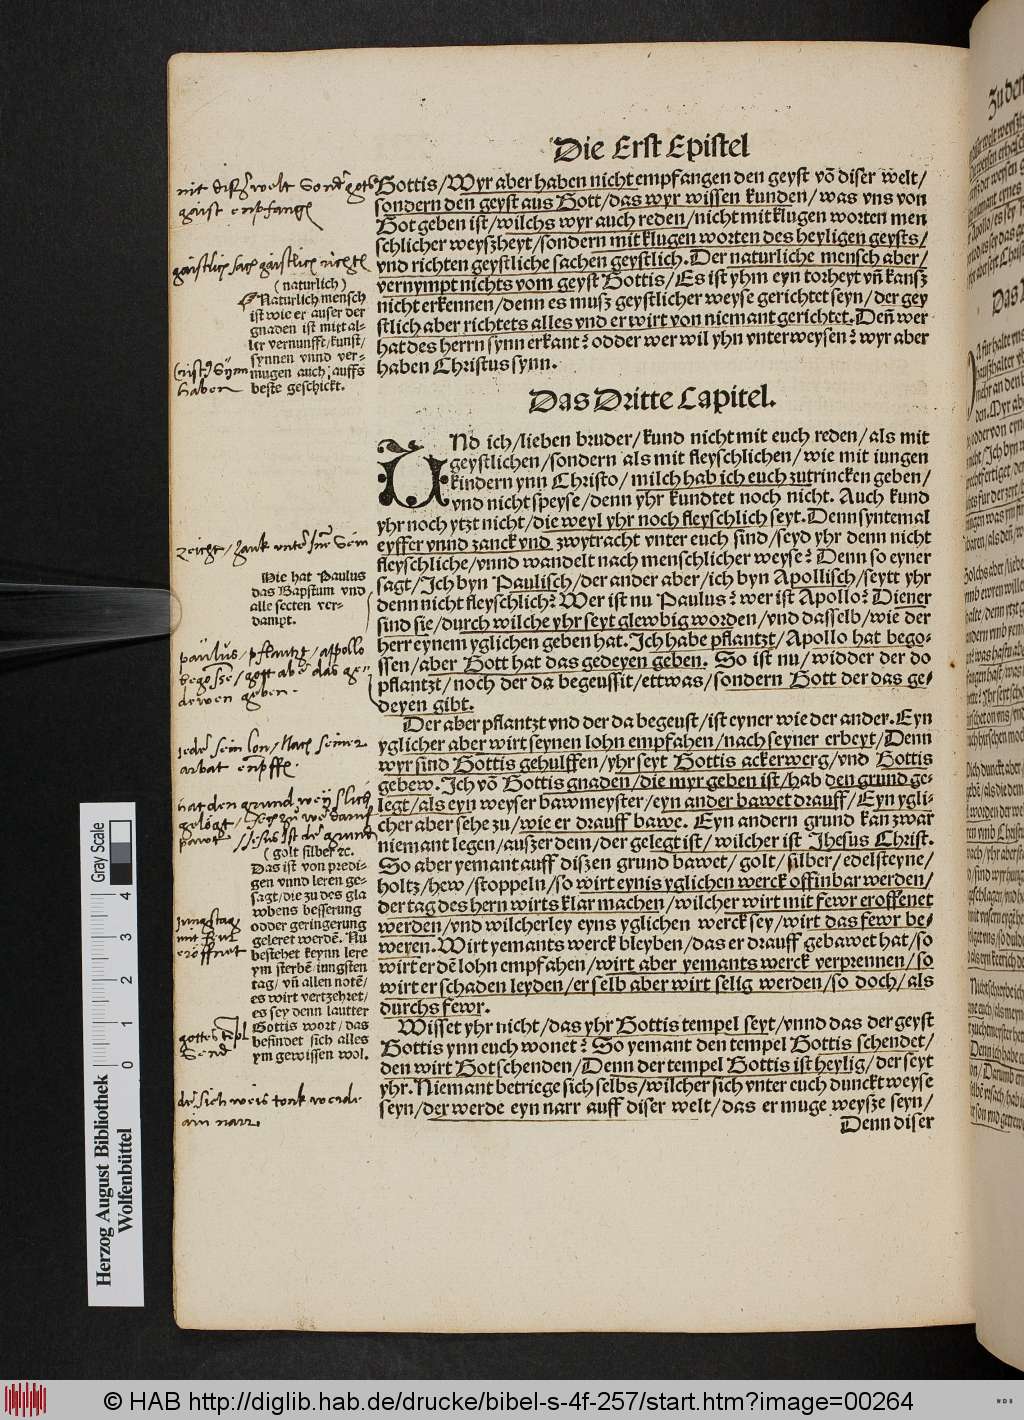 Die Erst Epistel
Gottis/Wyr aber haben nicht empfangen den geyst võ diser welt/
sondern den geyst aus Gott/das wyr wissen kunden/was vns von
Got geben ist/wilchs wyr auch reden/nicht mit klugen worten men
schlicher weyszheyt/sondern mit klugen worten des heyligen geysts/
vnd richten geystliche sachen geystlich. Der naturliche mensch aber/
vernympt nichts vom geyst Gottis/Es ist yhm eyn torheyt vñ kansz
nicht erkennen/denn es musz geystlicher weyse gerichtet seyn/der gey
stlich aber richtets alles vnd er wirt von niemant gerichtet. Deñ wer
hat des herrn synn erkant? odder wer wil yhn vnterweysen? wyr aber
haben Christus synn.
nit diser welt Sonder gots
gaist enpfangē
gaistlich sach gaistlich richtē
(naturlich)
Naturlich mensch
ist wie er auser der
gnaden ist mitt al-
ler vernunfft/kunst/
synnen vnnd ver-
mugen auch auffs
beste geschickt.
Synn
haben
Das Dritte Capitel.
UNd ich/lieben bruder/kund nicht mit euch reden/als mit
geystlichen/sondern als mit fleyschlichen/wie mit iungen
kindern ynn Christo/milch hab ich euch zutrincken geben/
vnd nicht speyse/denn yhr kundtet noch nicht. Auch kund
yhr noch ytzt nicht/die weyl yhr noch fleyschlich seyt. Denn syntemal
eyffer vnnd zanck vnd zwytracht vnter euch sind/seyd yhr denn nicht
fleyschliche/vnnd wandelt nach menschlicher weyse? Denn so eyner
sagt/Ich byn Paulisch/der ander aber/ich byn Apollisch/seytt yhr
denn nicht fleyschlich? Wer ist nu Paulus? wer ist Apollo? Diener
sind sie/durch wilche yhr seyt glewbig worden/vnd dasselb/wie der
herr eynem yglichen geben hat. Ich habe pflantzt/Apollo hat bego-
ssen/aber Gott hat das gedeyen geben. So ist nu/widder der do
pflantzt/noch der da begeussit/ettwas/sondern Gott der das ge-
deyen gibt.
zanck vnter Sein
Hie hat Paulus
das Bapstum vnd
alle secten ver-
dampt.
paulus/pflantzt/appollo
begosse/gott aber das ge-
deyen geben.
Der aber pflantzt vnd der da begeust/ist eyner wie der ander. Eyn
yglicher aber wirt seynen lohn empfahen/nach seyner erbeyt/Denn
wyr sind Gottis gehulffen/yhr seyt Gottis ackerwerg/vnd Gottis
gebew. Ich võ Gottis gnaden/die myr geben ist/hab den grund ge-
legt/als eyn weyser bawmeyster/eyn ander bawet drauff/Eyn ygli-
cher aber sehe zu/wie er drauff bawe. Eyn andern grund kan zwar
niemant legen/auszer dem/der gelegt ist/wilcher ist Jhesus Christ.
So aber yemant auff diszen grund bawet/golt/silber/edelsteyne/
holtz/hew/stoppeln/so wirt eynis yglichen werck offinbar werden/
der tag des hern wirts klar machen/wilcher wirt mit fewr eroffenet
werden/vnd wilcherley eyns yglichen werck sey/wirt das fewr be-
weren. Wirt yemants werck bleyben/das er drauff gebawet hat/so
wirt er dẽ lohn empfahen/wirt aber yemants werck verprennen/so
wirt er schaden leyden/er selb aber wirt selig werden/so doch/als
durchs fewr.
Jeder sein lon/Nach seiner
arbat enpffē.
hat den grund weyslich
gelögt
Jesus ist der grund
(golt silber ꝛc.
Das ist von predi-
gen vnnd leren ge-
sagt/die zu des gla
wbens besserung
odder geringerung
geleret werdẽ. Nu
bestehet keynn lere
ym sterbẽ/iungsten
tag/vñ allen notẽ/
es wirt vertzehret/
es sey denn lautter
Gottis wort/das
befindet sich alles
ym gewissen wol.
Jungstag
mit
eröffnet
Wisset yhr nicht/das yhr Gottis tempel seyt/vnnd das der geyst
Gottis ynn euch wonet? So yemant den tempel Gottis schendet/
den wirt Got schenden/Denn der tempel Gottis ist heylig/der seyt
yhr. Niemant betriege sich selbs/wilcher sich vnter euch dunckt weyse
seyn/der werde eyn narr auff diser welt/das er muge weysze seyn/
Denn diser
gottes
Send
der sich weis tonk werde
ain narr.
Gray Scale
0 1 2 3 4
Herzog August Bibliothek
Wolfenbüttel
© HAB http://diglib.hab.de/drucke/bibel-s-4f-257/start.htm?image=00264